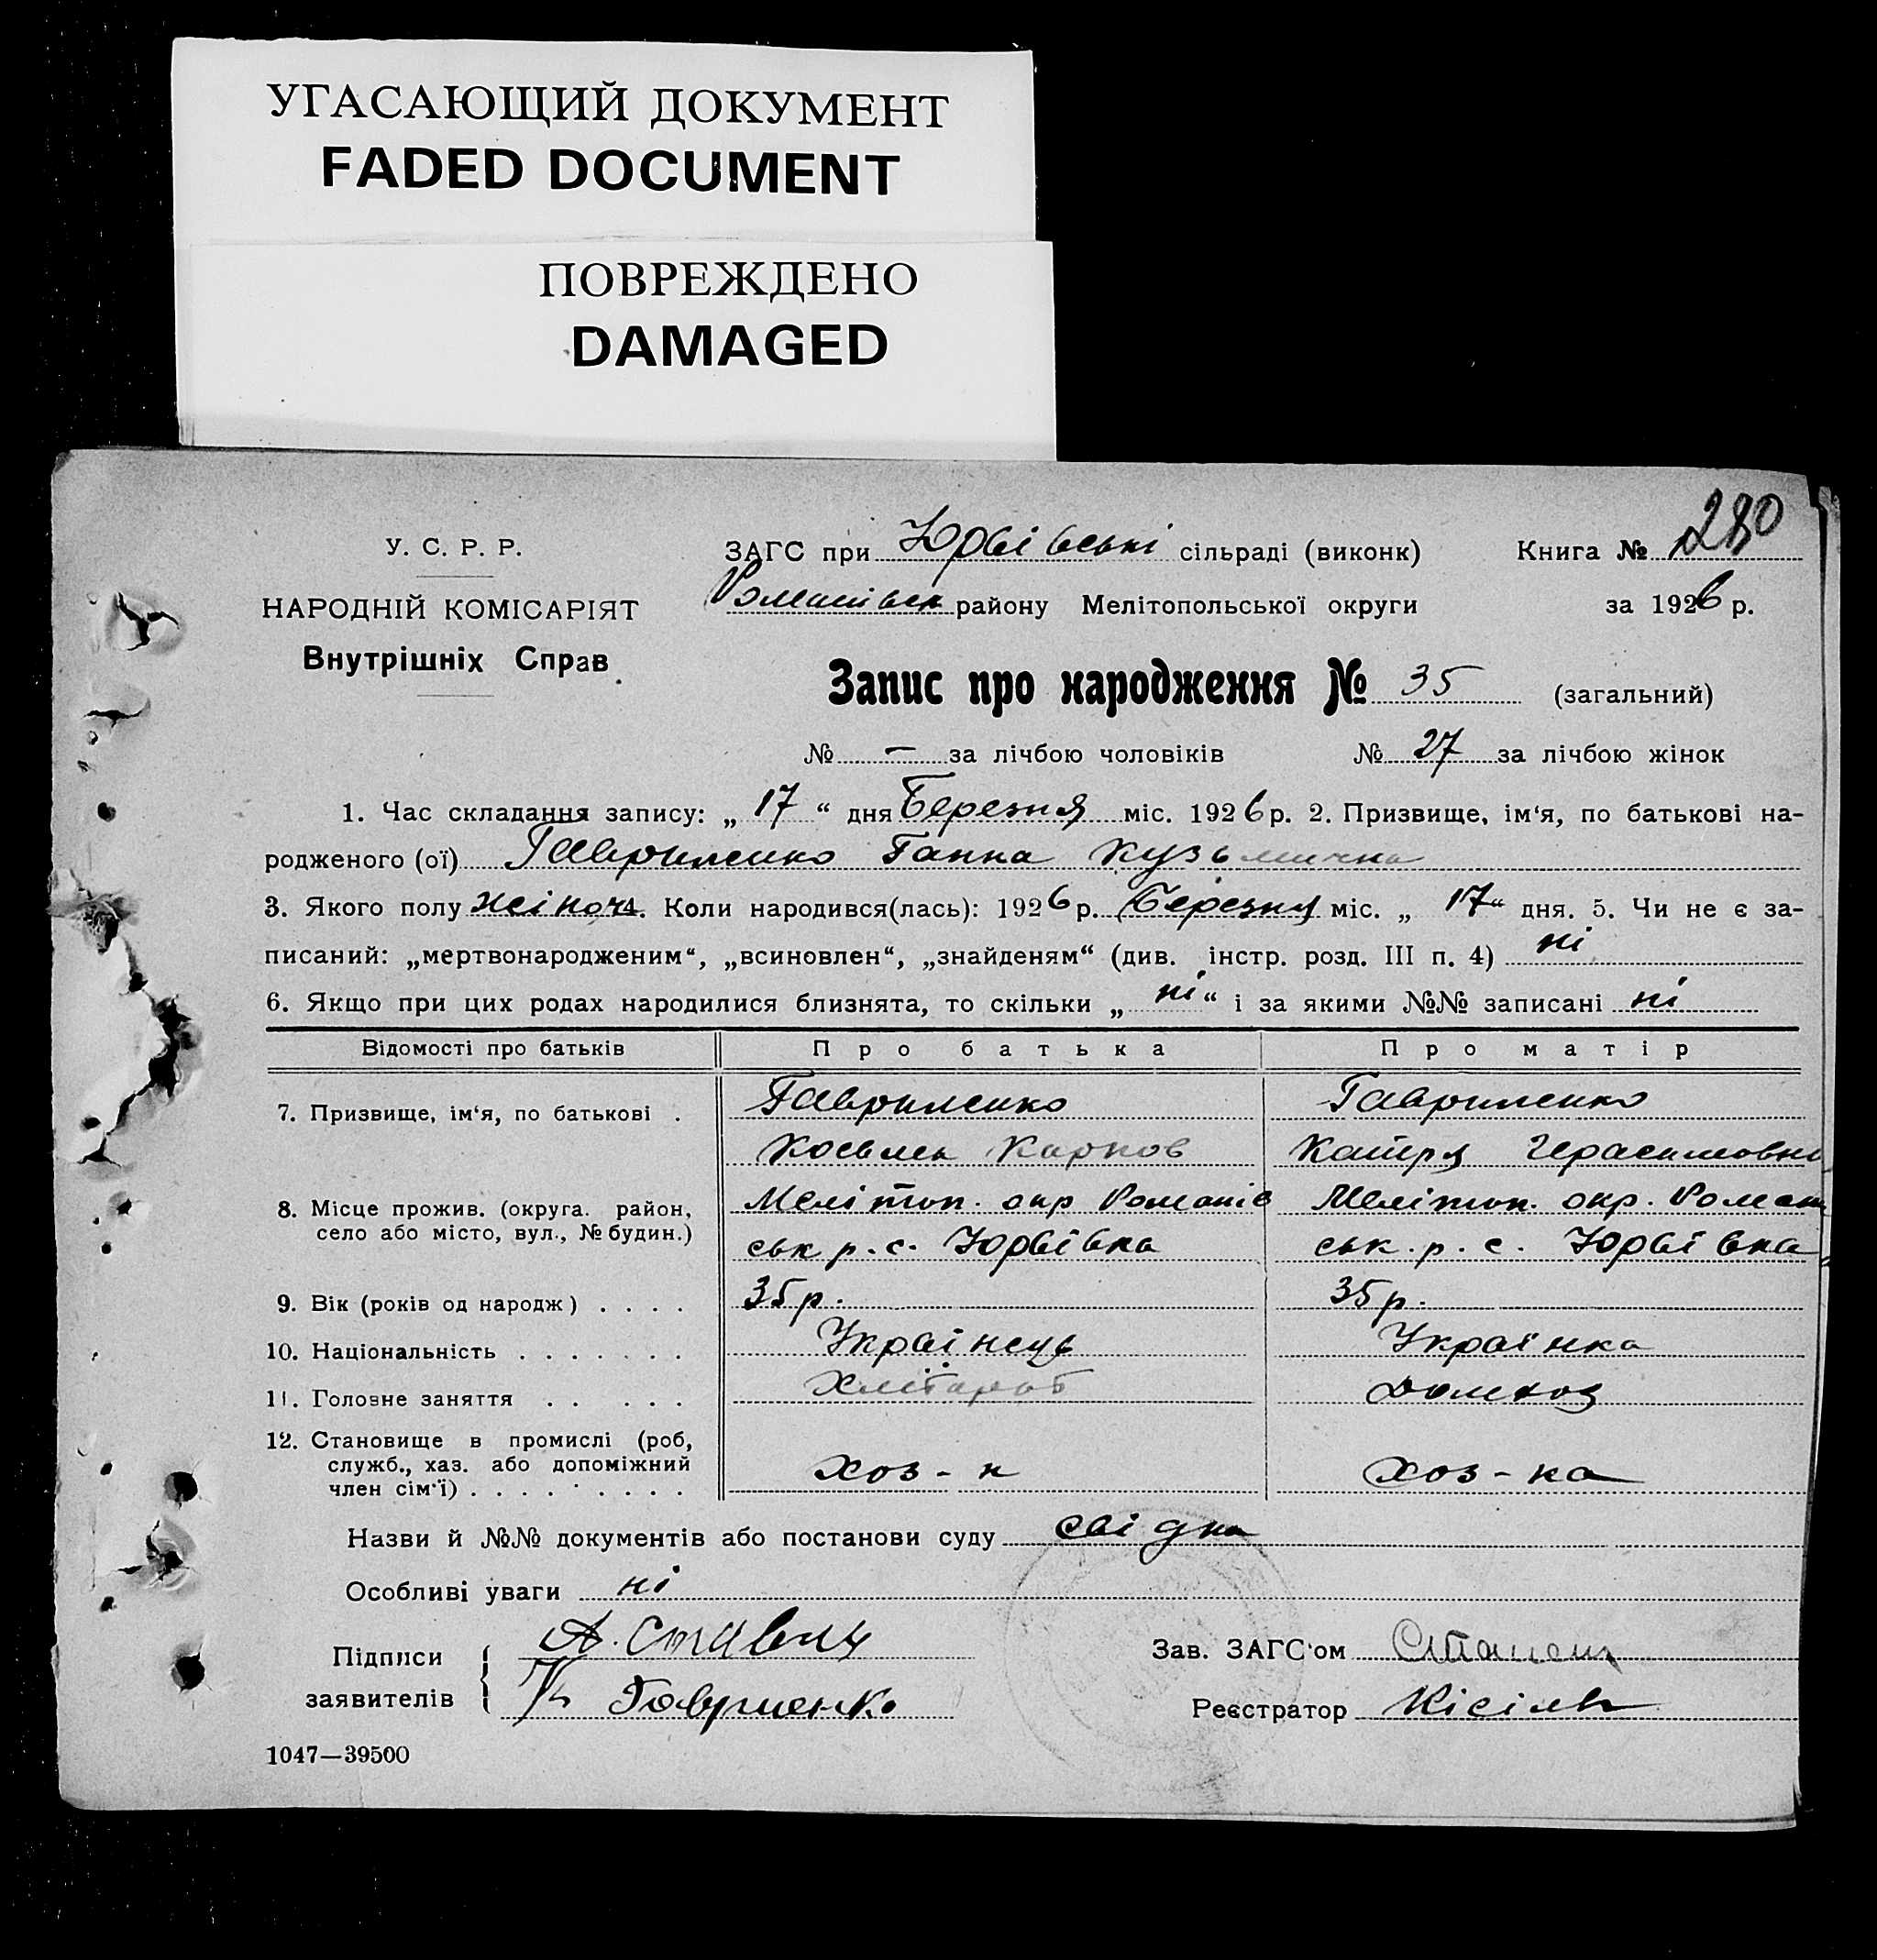 УГАСАЮЩИЙ ДОКУМЕНТ
FADED DOCUMENT
ПОВРЕЖДЕНО
DAMAGED
280
У. С. Р. Р.
ЗАГС при Юрвівські сільраді (виконк) Книга №
НАРОДНІЙ КОМІСАРІЯТ
Романівск району Мелітопольської округи за 1926 р.
Внутрішніх Справ
Запис про народження № 35 (загальний)
№ — за лічбою чоловіків № 27 за лічбою жінок
1. Час складання запису: „ 17 “ дня Березня міс. 1926 р. 2. Призвище, ім‘я, по батькові на-
родженого (ої) Гавриленко Ганна Кузьмична
3. Якого полу жіноч. Коли народився(лась): 1926 р. Березня міс. „ 17 “ дня. 5. Чи не є за-
писаний: „мертвонародженим“, „всиновлен“, „знайденям“ (див. інстр. розд. III п. 4) ні
6. Якщо при цих родах народилися близнята, то скільки „ ні “ і за якими №№ записані ні
Відомості про батьків Про батька Про матір
7. Призвище, ім‘я, по батькові . Гавриленко Гавриленко
Косьма Карпов Катря Герасимовна
8. Місце прожив. (округа. район, Мелітоп. окр Романів Мелітоп. окр. Роман
село або місто, вул., № будин.) ськ р. с. Юрвівка ськ. р. с. Юрвівка
9. Вік (років од народж) . . . . 35 р. 35 р.
10. Національність . . . . . . . Українець Українка
11. Головне заняття . . . . . Хлібороб домхоз
12. Становище в промислі (роб,
служб., хаз. або допоміжний Хоз-н Хоз-ка
член сім‘ї) . . . . . . . . .
Назви й №№ документів або постанови суду свідки
Особливі уваги ні
Підписи А.
Зав. ЗАГС‘ом
заявителів Гавриленко
Реєстратор Кісіль
1047—39500